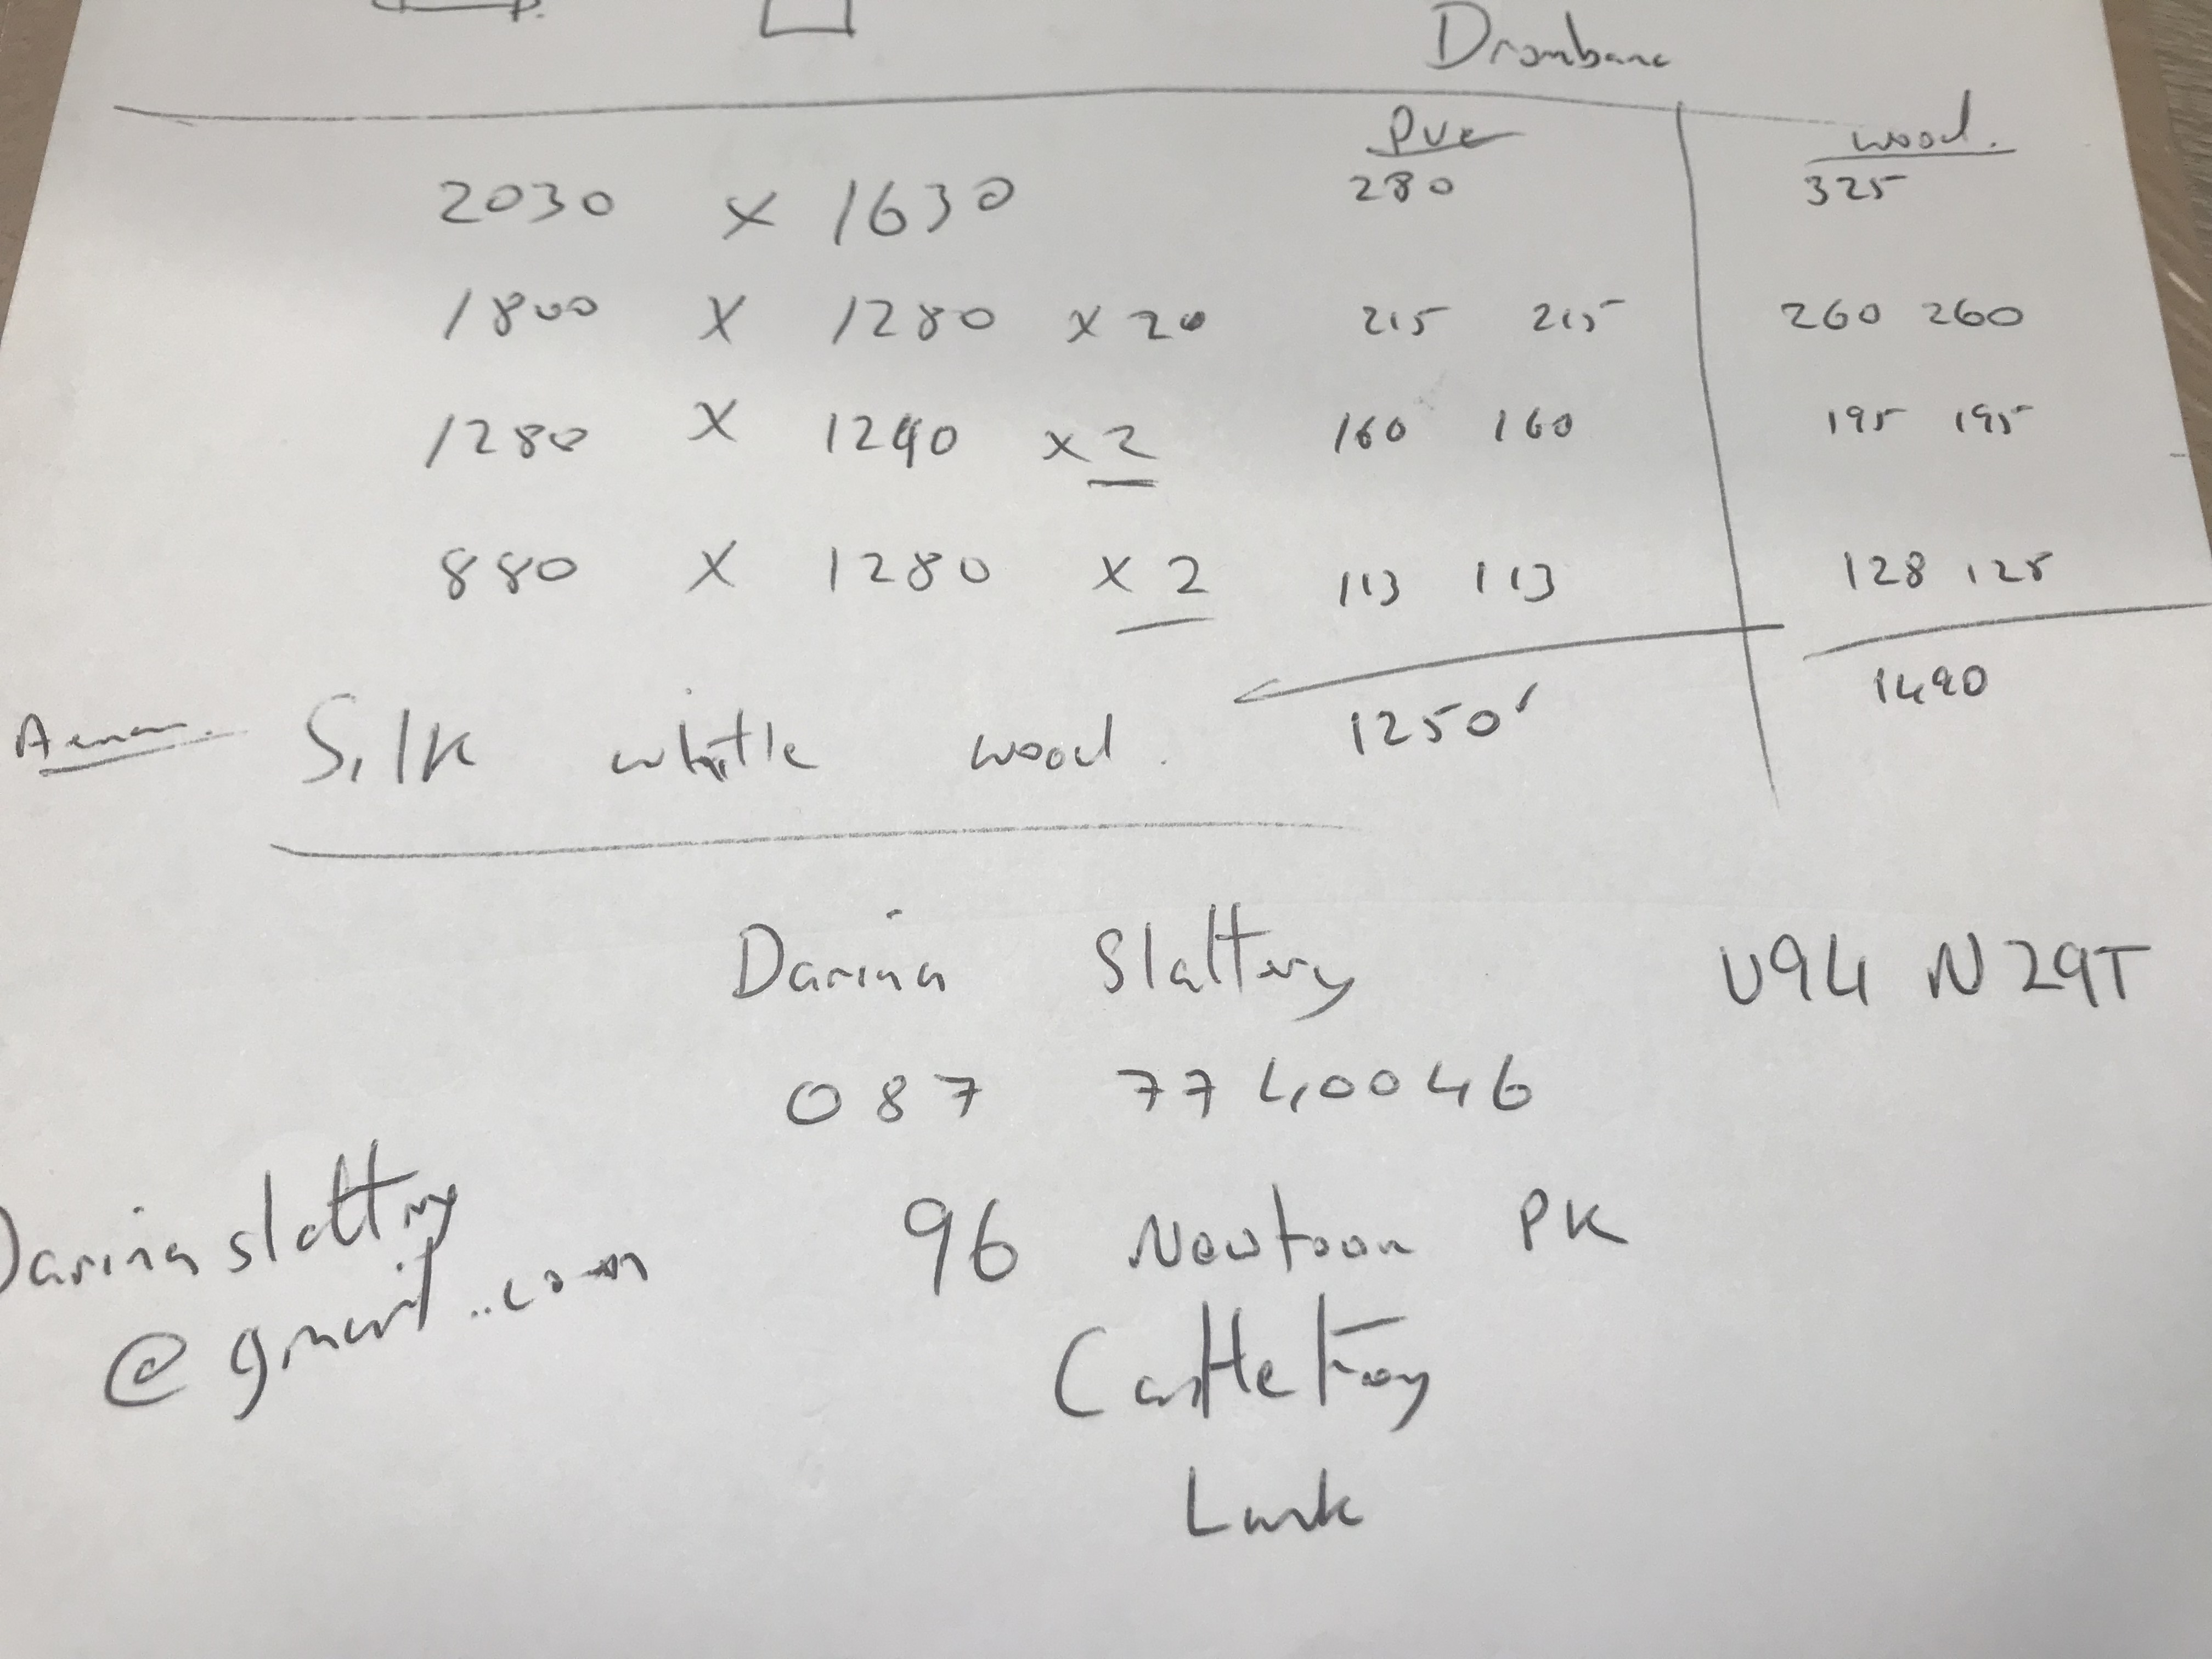 Drombane
Pvc wood.
2030 x 1630 280 325
1800 x 1280 x 20 215 215 260 260
1280 x 1240 x 2 160 160 195 195
880 x 1280 x 2 113 113 128 128
1250 1490
Silk white wood.
Darina Slattery U94 N29T
087 7740046
Darina slattery
@gmail.com
96 Newtown PK
Castletroy